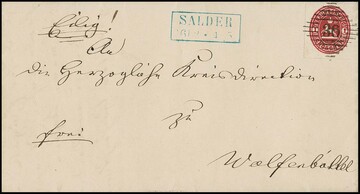 Eilig!
SALDER
An
die Herzogliche Kreisdirection
frei
zu
Wolfenbüttel